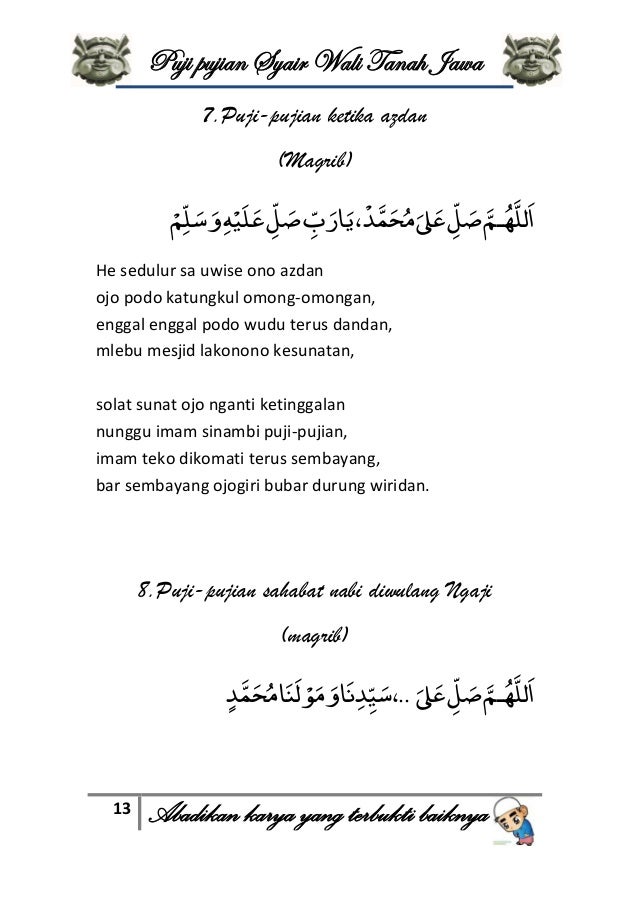 Puji pujian Syair Wali Tanah Jawa
7.Puji-pujian ketika azdan
(Magrib)
اَللَّهُـمَّ صَلِّ عَلَىٰ مُحَمَّدْ،يَارَبِّ صَلِّ عَلَيْهِ وَسَلِّمْ
He sedulur sa uwise ono azdan
ojo podo katungkul omong-omongan,
enggal enggal podo wudu terus dandan,
mlebu mesjid lakonono kesunatan,
solat sunat ojo nganti ketinggalan
nunggu imam sinambi puji-pujian,
imam teko dikomati terus sembayang,
bar sembayang ojogiri bubar durung wiridan.
8.Puji-pujian sahabat nabi diwulang Ngaji
(magrib)
اَللَّهُـمَّ صَلِّ عَلَىٰ ..،سَيِّدِنَاوَمَوْلَنَامُحَمَّدٍ
13 Abadikan karya yang terbukti baiknya